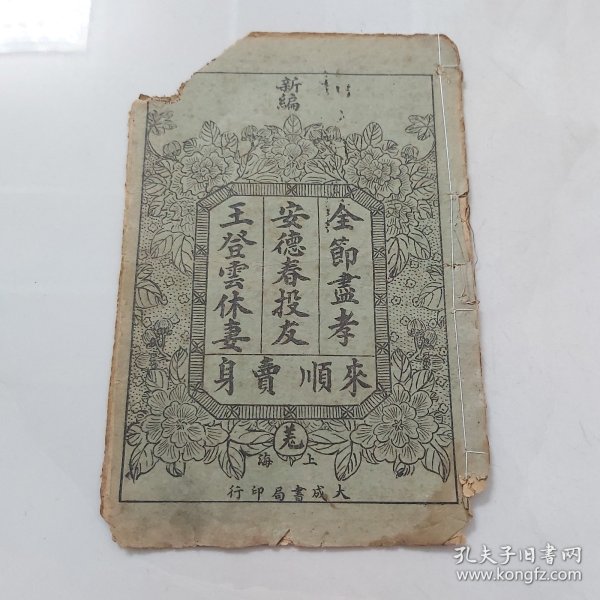 新編
全節盡孝
安德春投友
王登雲休妻
來順賣身
上海
大成書局印行
孔夫子旧书网
www.kongfz.com